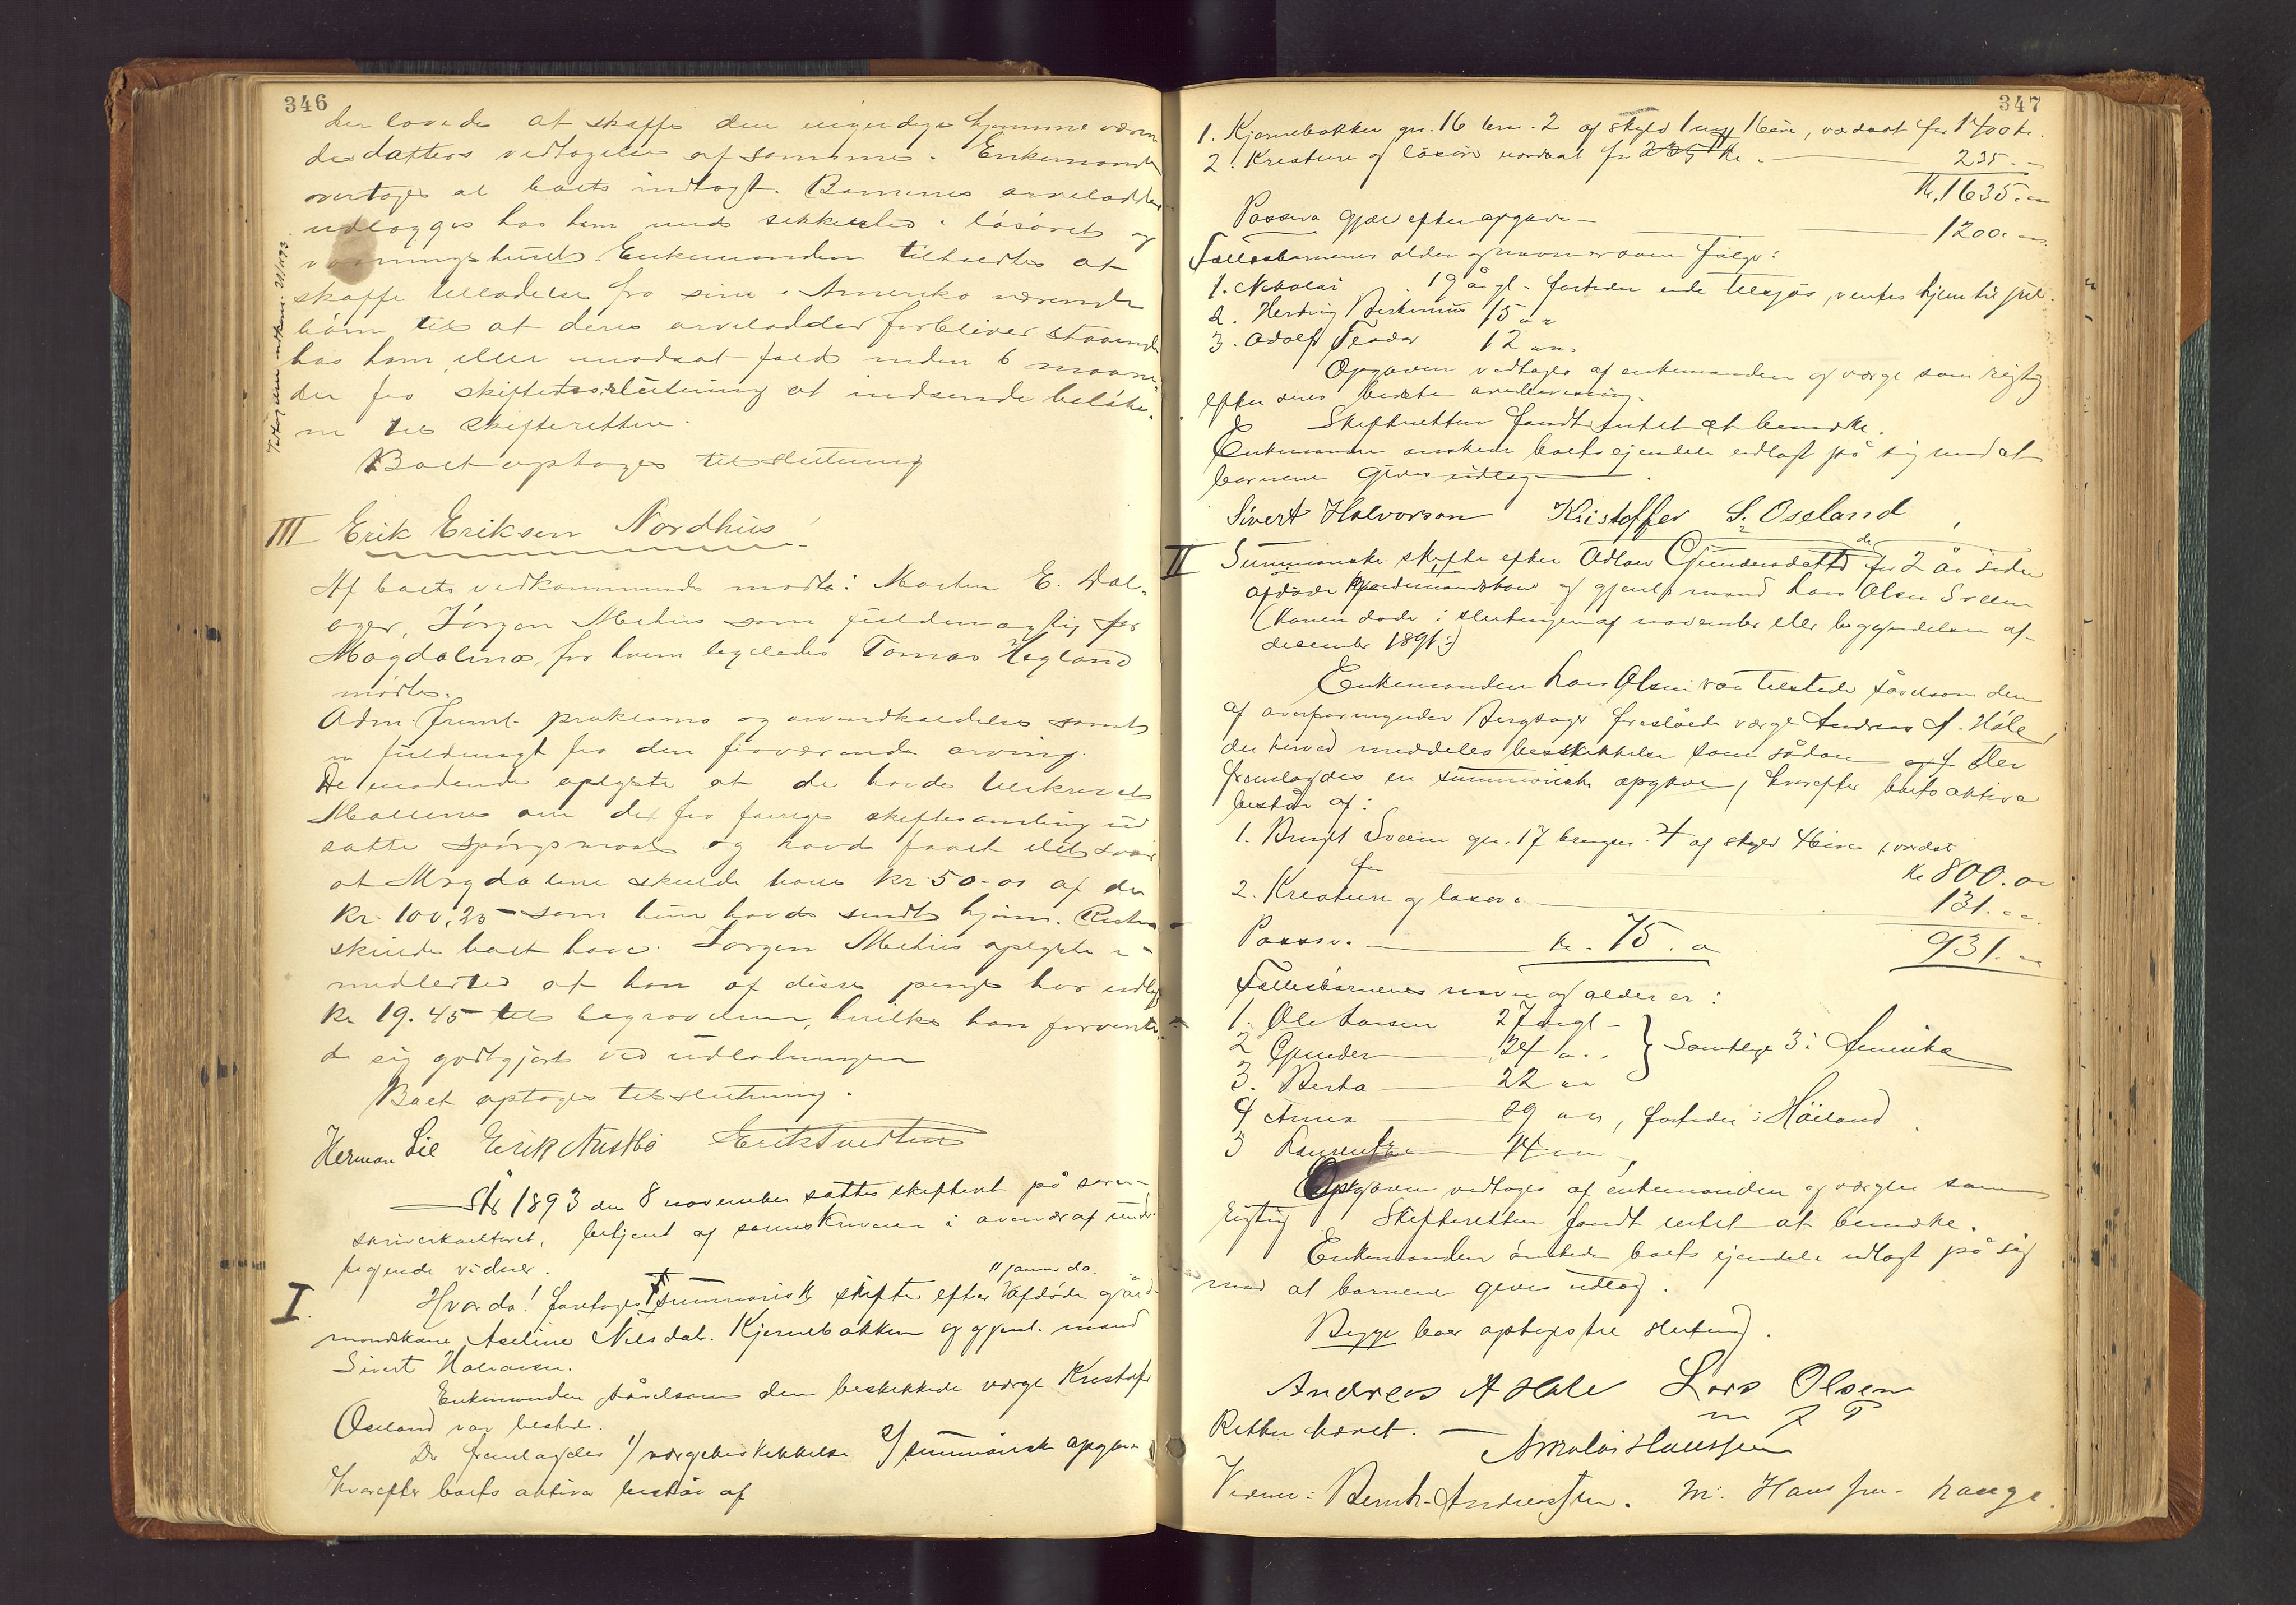 346
der lovede at skaffe den myndige hjemmeværen
de datters vedtagelse af samme. Enkemanden
overtager al boets indtægt. Børnenes arvelodder
udlægges hos ham mod sikkerhed i løsøret og
vaaningshuset. Enkemanden tilholdtes at
skaffe tilladelse fra sine i Amerika værende
børn til at deres arvelodder forbliver staaende
hos ham eller i modsat fald inden 6 maane-
der fra skiftets slutning at indsende beløbe-
ne til skifteretten.
Boet optoges til slutning
III Erik Eriksen Nordhus
Af boets vedkommende mødte: Morten E. Dal-
ager, Jørgen Mehus som fuldmægtig for
Magdalena, for hvem ligeledes Tomas Hegland
mødte.
Adm. freml. proklama og arveindkaldelse samt
en fuldmagt fra den fraværende arving.
De mødende oplyste at de havde tilskrevet
Mallene om det fra forrige skiftesamling ud
satte spørgsmaal og havde faaet det svar
at Magdalene skulde have kr 50.00 af de
kr. 100,25 som hun havde sendt hjem. Resten
skulde boet have. Jørgen Mehus oplyste i-
midlertid at han af disse penge har udlagt
kr 19.45 til begravelsen, hvilke han forvente-
de sig godtgjort ved udlodningen
Boet optoges til slutning.
Herman Lie Erik Austbø Erik Tvedten
År 1893 den 8 november sattes skifteret på soren-
skriverkontoret, betjent af sorenskriveren i overvær af under-
tegnede vidner.
I. Hvorda! foretoges summarisk skifte efter 11 januar da. afdøde gård
mandskone Aseline Nilsdatr. Kjernebakken og gjenl. mand
Sivert Halvorsen.
Enkemanden såvelsom den beskikkede værge Kristoffer
Oseland var tilstede.
Der fremlagdes 1) værgebeskikkelse 2) summarisk opgave
hvorefter boets aktiva består af
347
1. Kjernebakken gn. 16 brn. 2 af skyld 1 16 øre, værdsat for 1400 kr.
2. Kreature og løsøre værdsat for 235 kr. 235.
Kr. 1635.
Passiva gjæld efter opgave 1200.
Fællesbarnenes alder og navne er som følger:
1. Nikolai 19 år gl. fortiden ude tilsjøs, ventes hjem til jul.
2. Hertvig Berkinius 15
3. Adolf Teodor 12
Opgaven vedtoges af enkemanden og værge som rigtig
efter deres bedste overbevisning.
Skifteretten fandt intet at bemærke.
Enkemanden ønskede boets ejendele udlagt på sig mod at
barnene gives udlæg.
Sivert Halvorsen Kristoffer S. Oseland
II Summarisk skifte efter Gundersdatter for 2 år siden
afdøde gårdmandskone og gjenl. mand Lars Olsen Sveen
(konen døde i slutningen af november eller begyndelsen af
desember 1891:)
Enkemanden Lars Olsen var tilstede såvelsom den
af overformynder Bergsager foreslåede værge Andreas A. Håle,
der herved meddeles beskikkelse som sådan. Der
fremlagdes en summarisk opgave, hvorefter boets aktiva
består af:
1. Bruget Sveen gn. 17 brugsn. 4 af skyld 46 øre, værdsat
for kr 800.
2. Kreature og løsøre 131.
Passiv. kr. 75. 931.
Fællesbørnenes navn og alder er:
1. Ole Larsen 27 årgl
2 Gunder 24 } Samtlige 3 i Amerika
3. Berta 22
4 Anna 29 , fortiden i Håland
5 14
Opgaven vedtoges af enkemanden og værgen som
rigtig. Skifteretten fandt intet at bemærke.
Enkemanden ønskede boets ejendele udlagt på sig
mod at barnene gives udlæg.
Begge boer optoges til slutning.
Andreas A Hale Lars Olsen
m f P
Retten hævet.
Vidner: Bernh. Andreassen. M. Hanssen Lange.